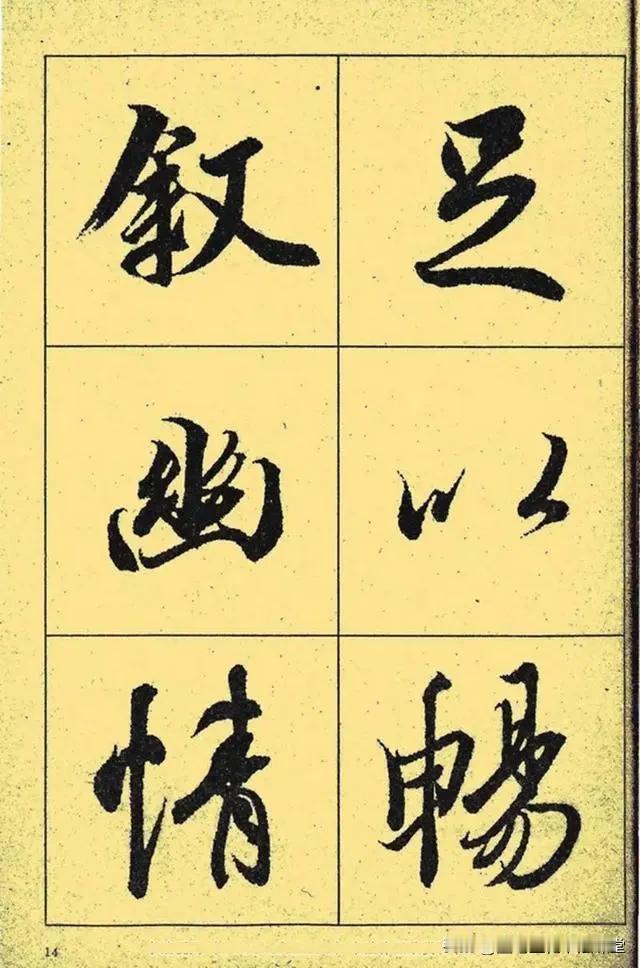 足以暢
敘幽情
14